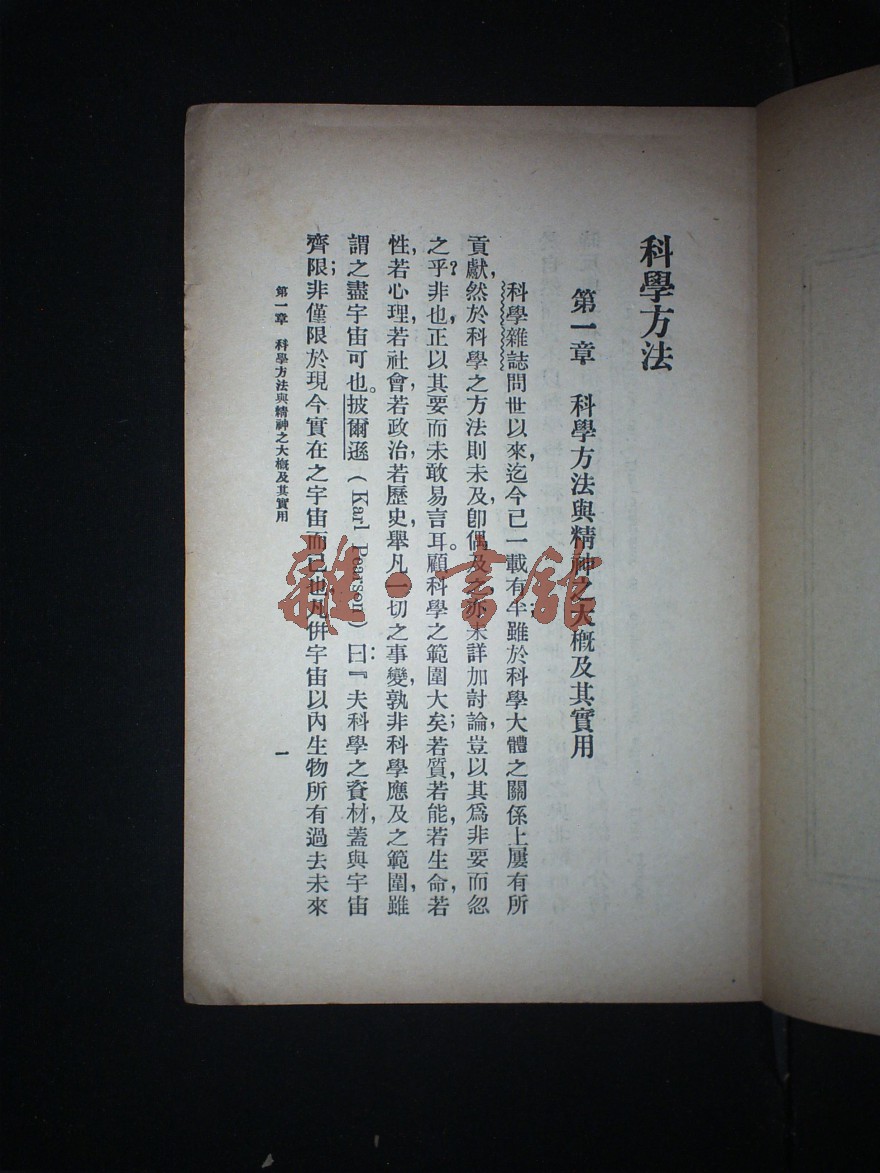 科學方法
第一章 科學方法與精神之大槪及其實用
科學雜誌問世以來,迄今已一載有半;雖於科學大體之關係上屢有所
貢獻,然於科學之方法則未及,卽偶及之,亦未詳加討論,豈以其爲非要而忽
之乎?非也,正以其要而未敢易言耳。顧科學之範圍大矣;若質,若能,若生命,若
性,若心理,若社會,若政治,若歷史,舉凡一切之事變,孰非科學應及之範圍,雖
謂之盡宇宙可也。披爾遜(Karl Pearson)曰:『夫科學之資材,蓋與宇宙
齊限;非僅限於現今實在之宇宙而已也,凡併宇宙以內生物所有過去未來
第一章 科學方法與精神之大槪及其實用
一
雜·書館